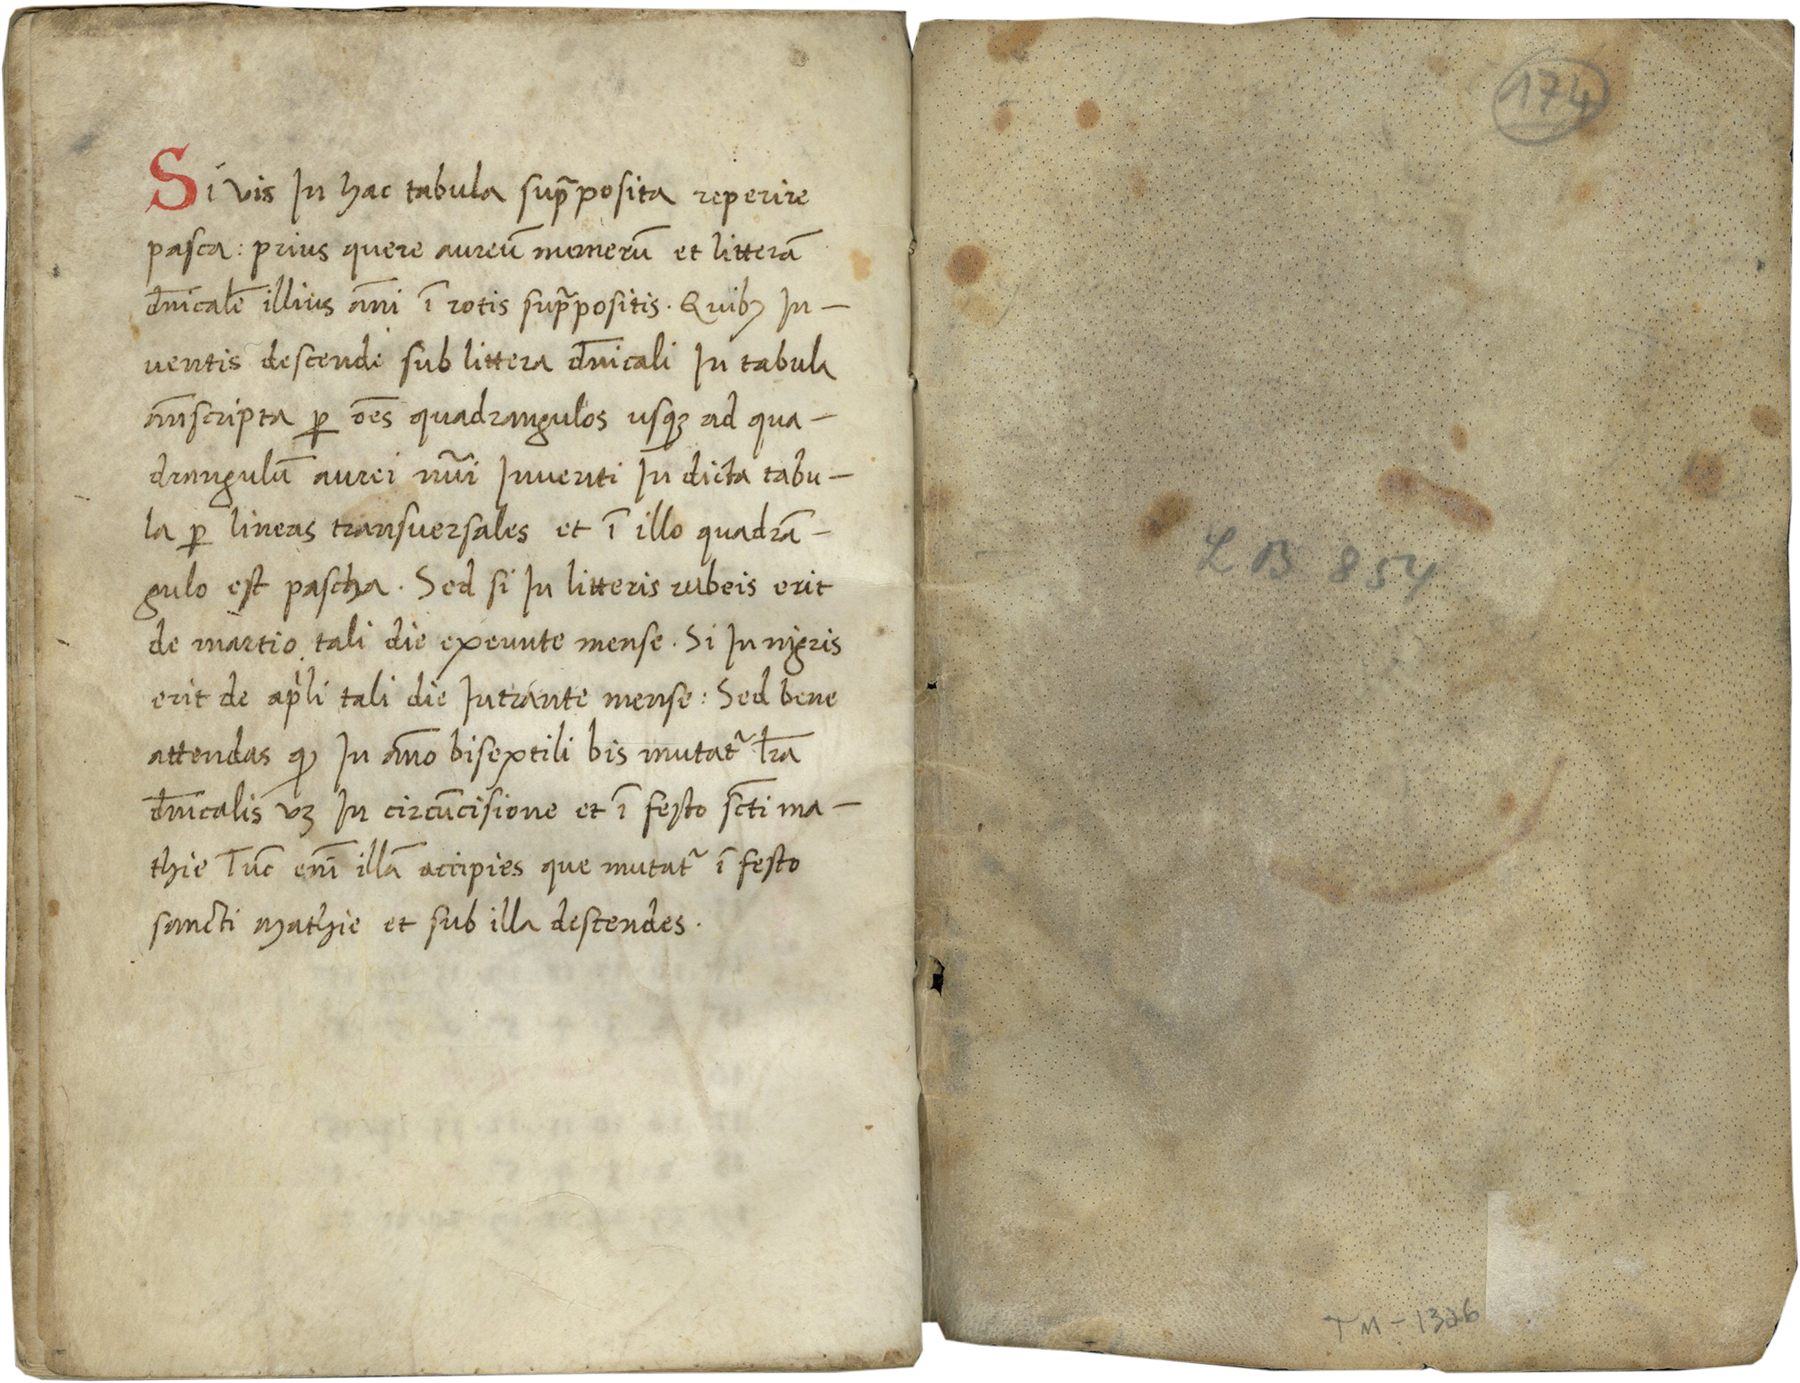 Si vis In hac tabula sup̄posita reperire
pasca: prius quere aureū numerū et litterā
d̄nicalē illius an̄i ī rotis sup̄positis. Quibꝫ In-
ventis descende sub littera d̄nicali In tabula
ꝑ oēs quadrangulos usqꝫ ad qua-
drangulū aurei nūi Inventi In dicta tabu-
la ꝑ lineas transversales et ī illo quadrā-
gulo est pascha. Sed si In litteris rubeis erit
de martio tali die exeunte mense. Si In nigris
erit de apli tali die Intrante mense: Sed bene
attendas ꝙ In an̄o bisextili bis mutatr̃ l̄ra
d̄nicalis vꝫ In circūcisione et ī festo sc̄ti ma-
thie Tūc enī illā accipies que mutatr̃ ī festo
sancti Mathie et sub illa descendes.
174
LB 854
TM-1326